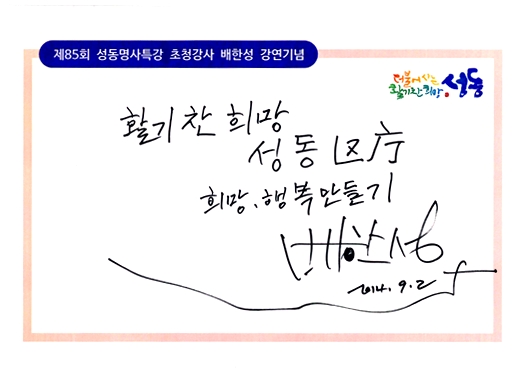 제85회 성동명사특강 초청강사 배한성 강연기념
더불어사는
활기찬희망 성동
활기찬 희망
성동 区庁
희망、행복만들기
배한성
2014. 9. 2